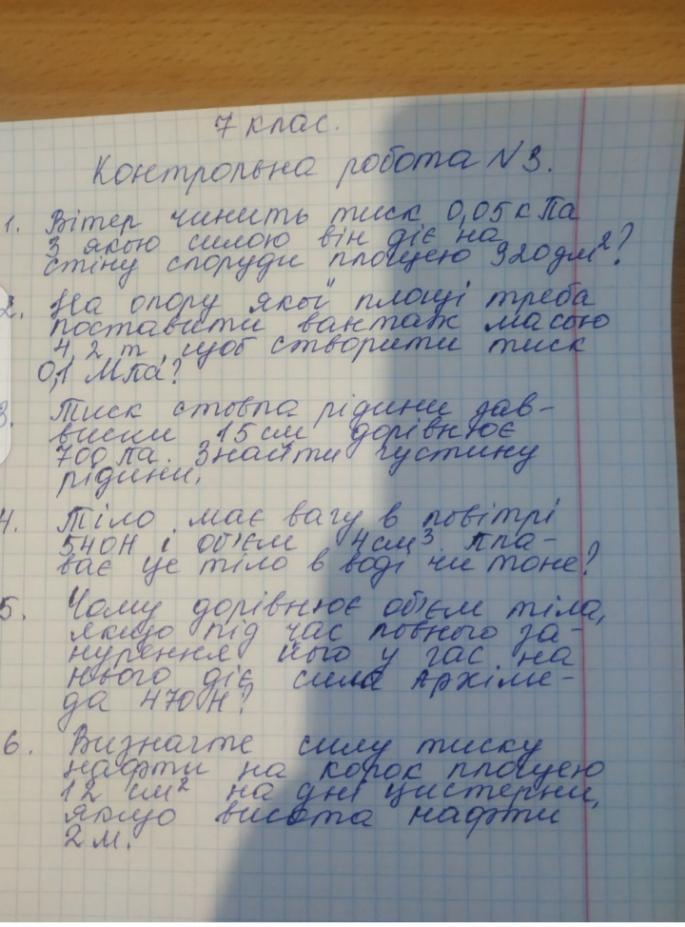 7 клас.
Контрольна робота №3.
1. Вітер чинить тиск 0,05 кПа
З якою силою він діє на
стіну споруди площею 920дм²?
2. На опору якої площі треба
поставити вантаж масою
4,2 т, щоб створити тиск
0,1 МПа?
3. Тиск стовпа рідини зав-
вишки 15 см дорівнює
700 Па. Знайти густину
рідини.
4. Тіло має вагу в повітрі
540Н і об'єм 4см³. Пла-
ває це тіло в воді чи тоне?
5. Чому дорівнює об'єм тіла,
якщо під час повного за-
нурення його у гас на
нього діє сила Архіме-
да 470Н?
6. Визначте силу тиску
нафти на корок площею
12 см² на дні цистерни,
якщо висота нафти
2 м.